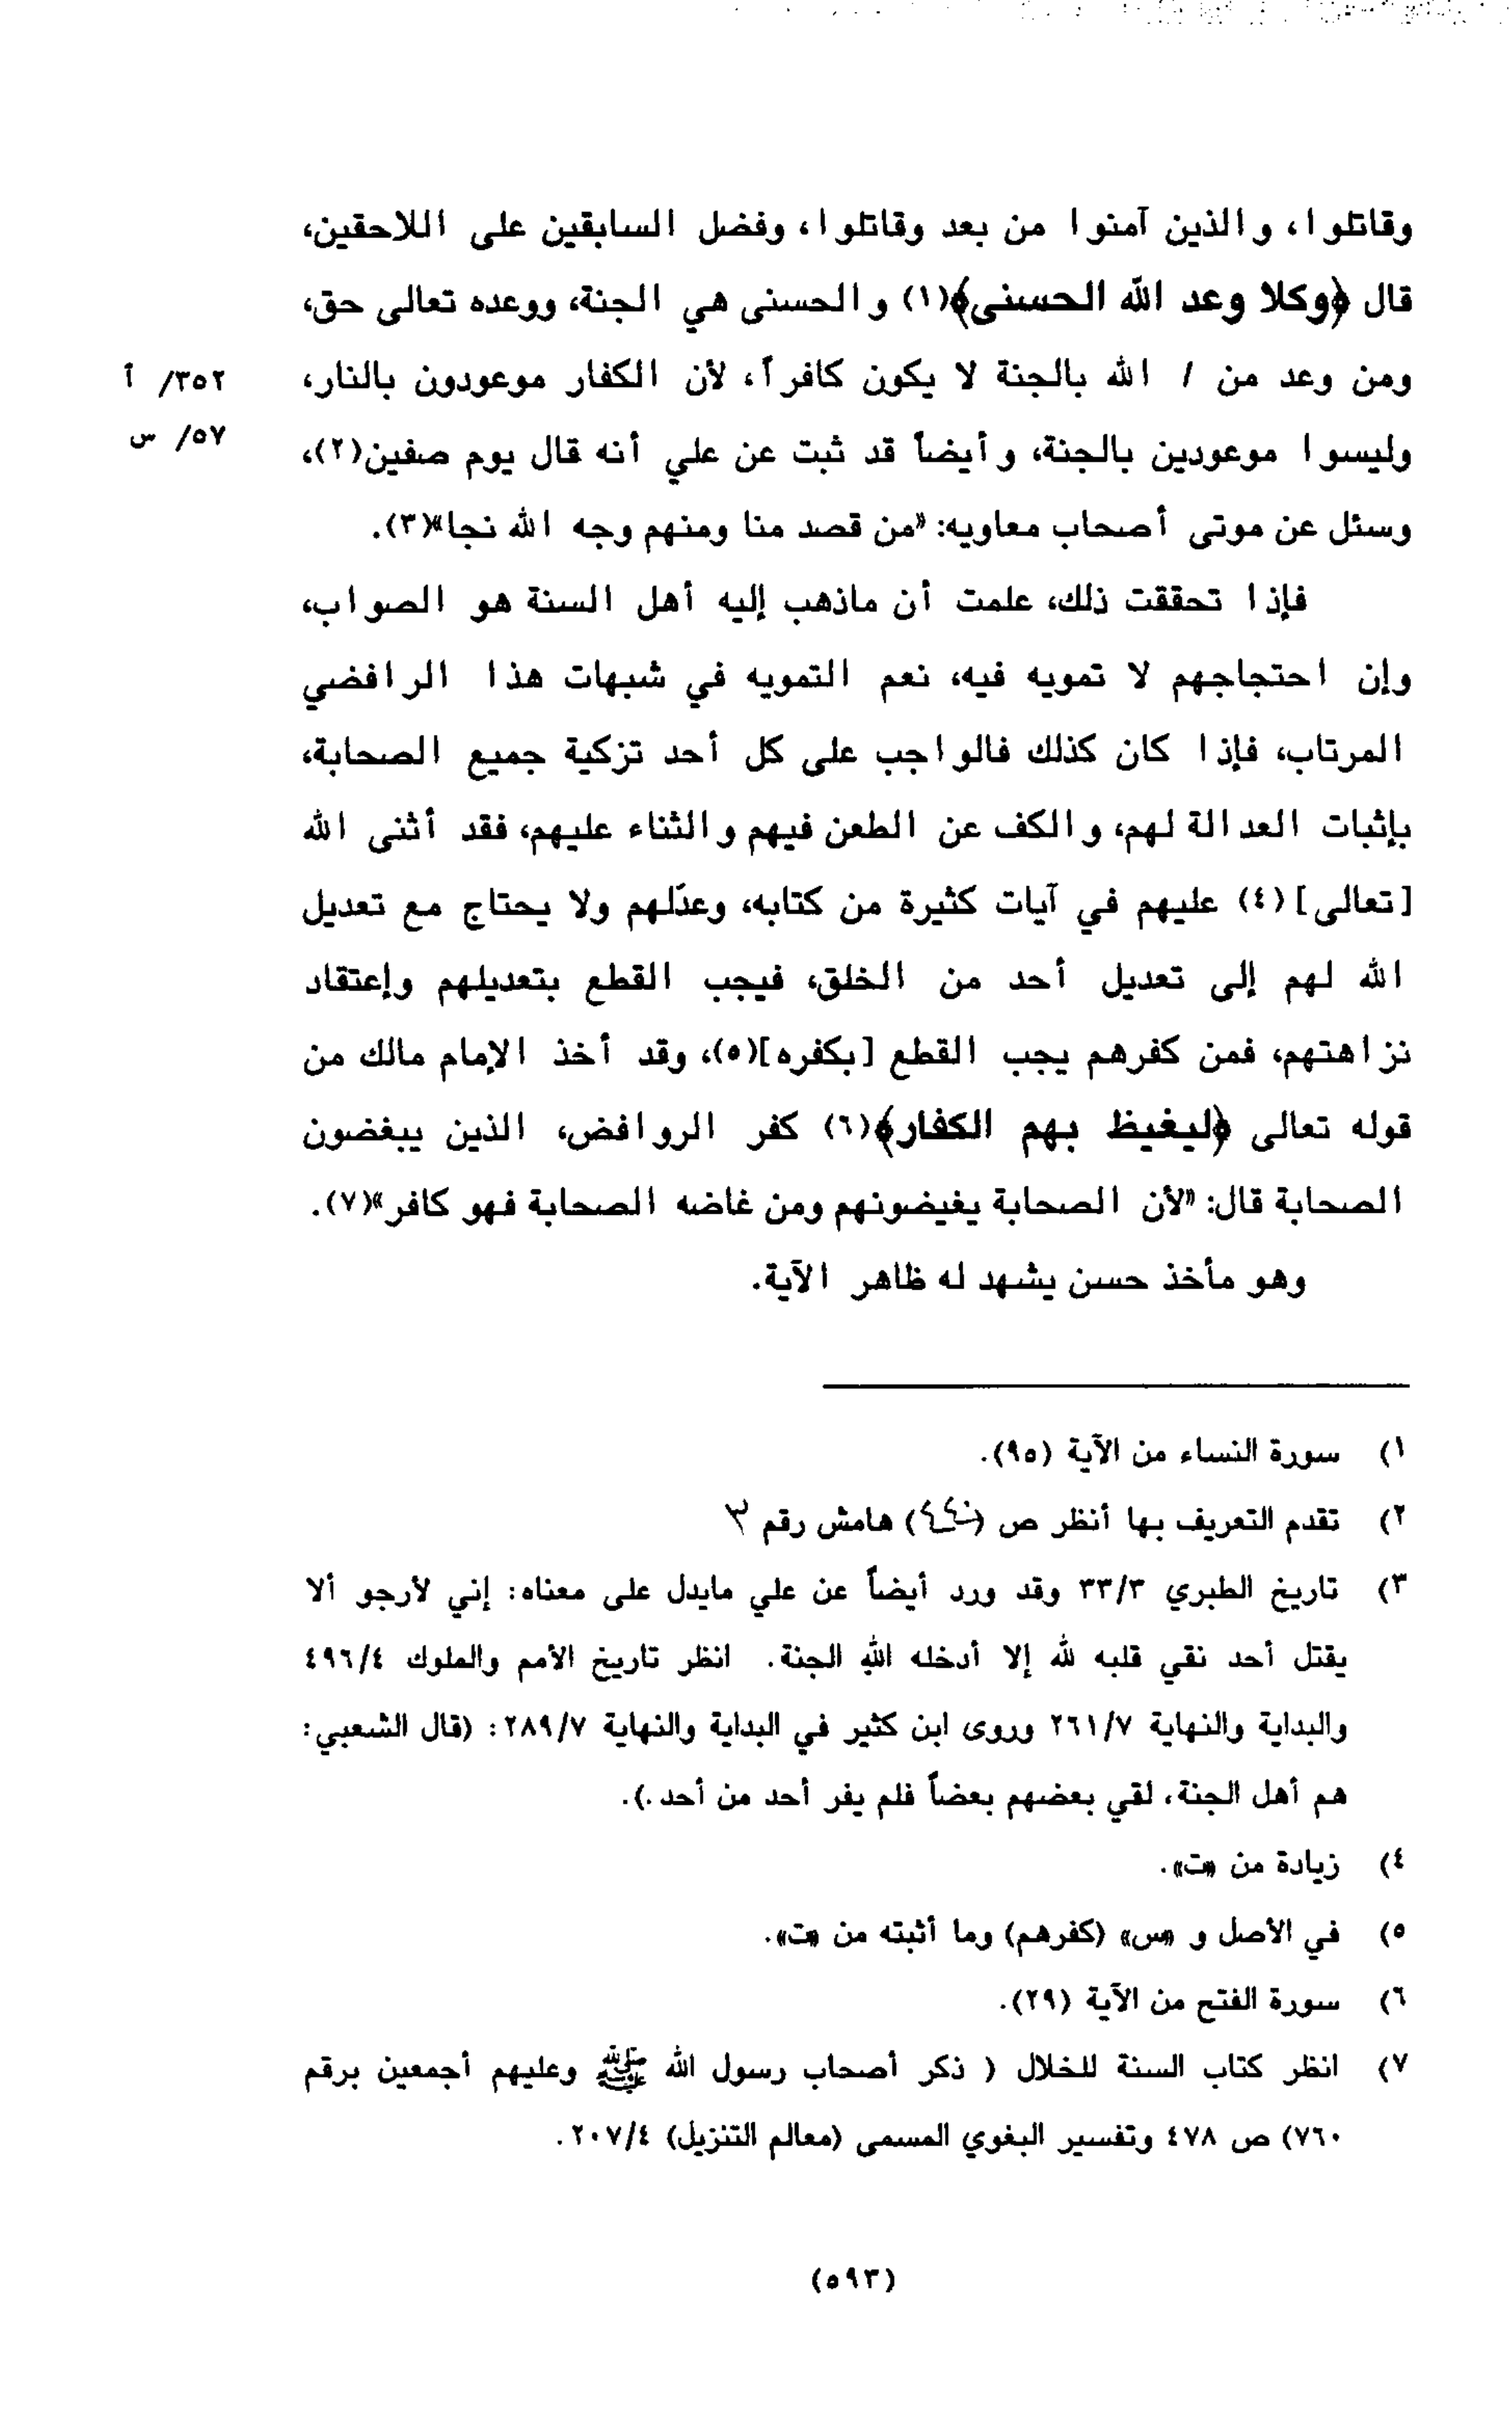 وقاتلوا، والذين آمنوا من بعد وقاتلوا، وفضل السابقين على اللاحقين،
قال ﴿وكلا وعد الله الحسنى﴾(١) والحسنى هي الجنة، ووعده تعالى حق،
ومن وعد من / الله بالجنة لا يكون كافراً، لأن الكفار موعودون بالنار،
٣٥٢/ أ
وليسوا موعودين بالجنة، وأيضاً قد ثبت عن علي أنه قال يوم صفين(٢)،
٥٧/ س
وسئل عن موتى أصحاب معاويه: «من قصد منا ومنهم وجه الله نجا»(٣).
فإذا تحققت ذلك، علمت أن ماذهب إليه أهل السنة هو الصواب،
وإن احتجاجهم لا تمويه فيه، نعم التمويه في شبهات هذا الرافضي
المرتاب، فإذا كان كذلك فالواجب على كل أحد تزكية جميع الصحابة،
بإثبات العدالة لهم، والكف عن الطعن فيهم والثناء عليهم، فقد أثنى الله
[تعالى](٤) عليهم في آيات كثيرة من كتابه، وعدّلهم ولا يحتاج مع تعديل
الله لهم إلى تعديل أحد من الخلق، فيجب القطع بتعديلهم وإعتقاد
نزاهتهم، فمن كفرهم يجب القطع [بكفره](٥)، وقد أخذ الإمام مالك من
قوله تعالى ﴿ليغيظ بهم الكفار﴾(٦) كفر الروافض، الذين يبغضون
الصحابة قال: «لأن الصحابة يغيضونهم ومن غاضه الصحابة فهو كافر»(٧).
وهو مأخذ حسن يشهد له ظاهر الآية.
١) سورة النساء من الآية (٩٥).
٢) تقدم التعريف بها أنظر ص هامش رقم ٣
٣) تاريخ الطبري ٣٣/٣ وقد ورد أيضاً عن علي مايدل على معناه: إني لأرجو ألا
يقتل أحد نقي قلبه لله إلا أدخله الله الجنة. انظر تاريخ الأمم والملوك ٤٩٦/٤
والبداية والنهاية ٢٦١/٧ وروى ابن كثير في البداية والنهاية ٢٨٩/٧: (قال الشعبي:
هم أهل الجنة، لقي بعضهم بعضاً فلم يفر أحد من أحد.).
٤) زيادة من «ت».
٥) في الأصل و «س» (كفرهم) وما أثبته من «ت».
٦) سورة الفتح من الآية (٢٩).
٧) انظر كتاب السنة للخلال ( ذكر أصحاب رسول الله ﷺ وعليهم أجمعين برقم
٧٦٠) ص ٤٧٨ وتفسير البغوي المسمى (معالم التنزيل) ٢٠٧/٤.
(٥٩٣)